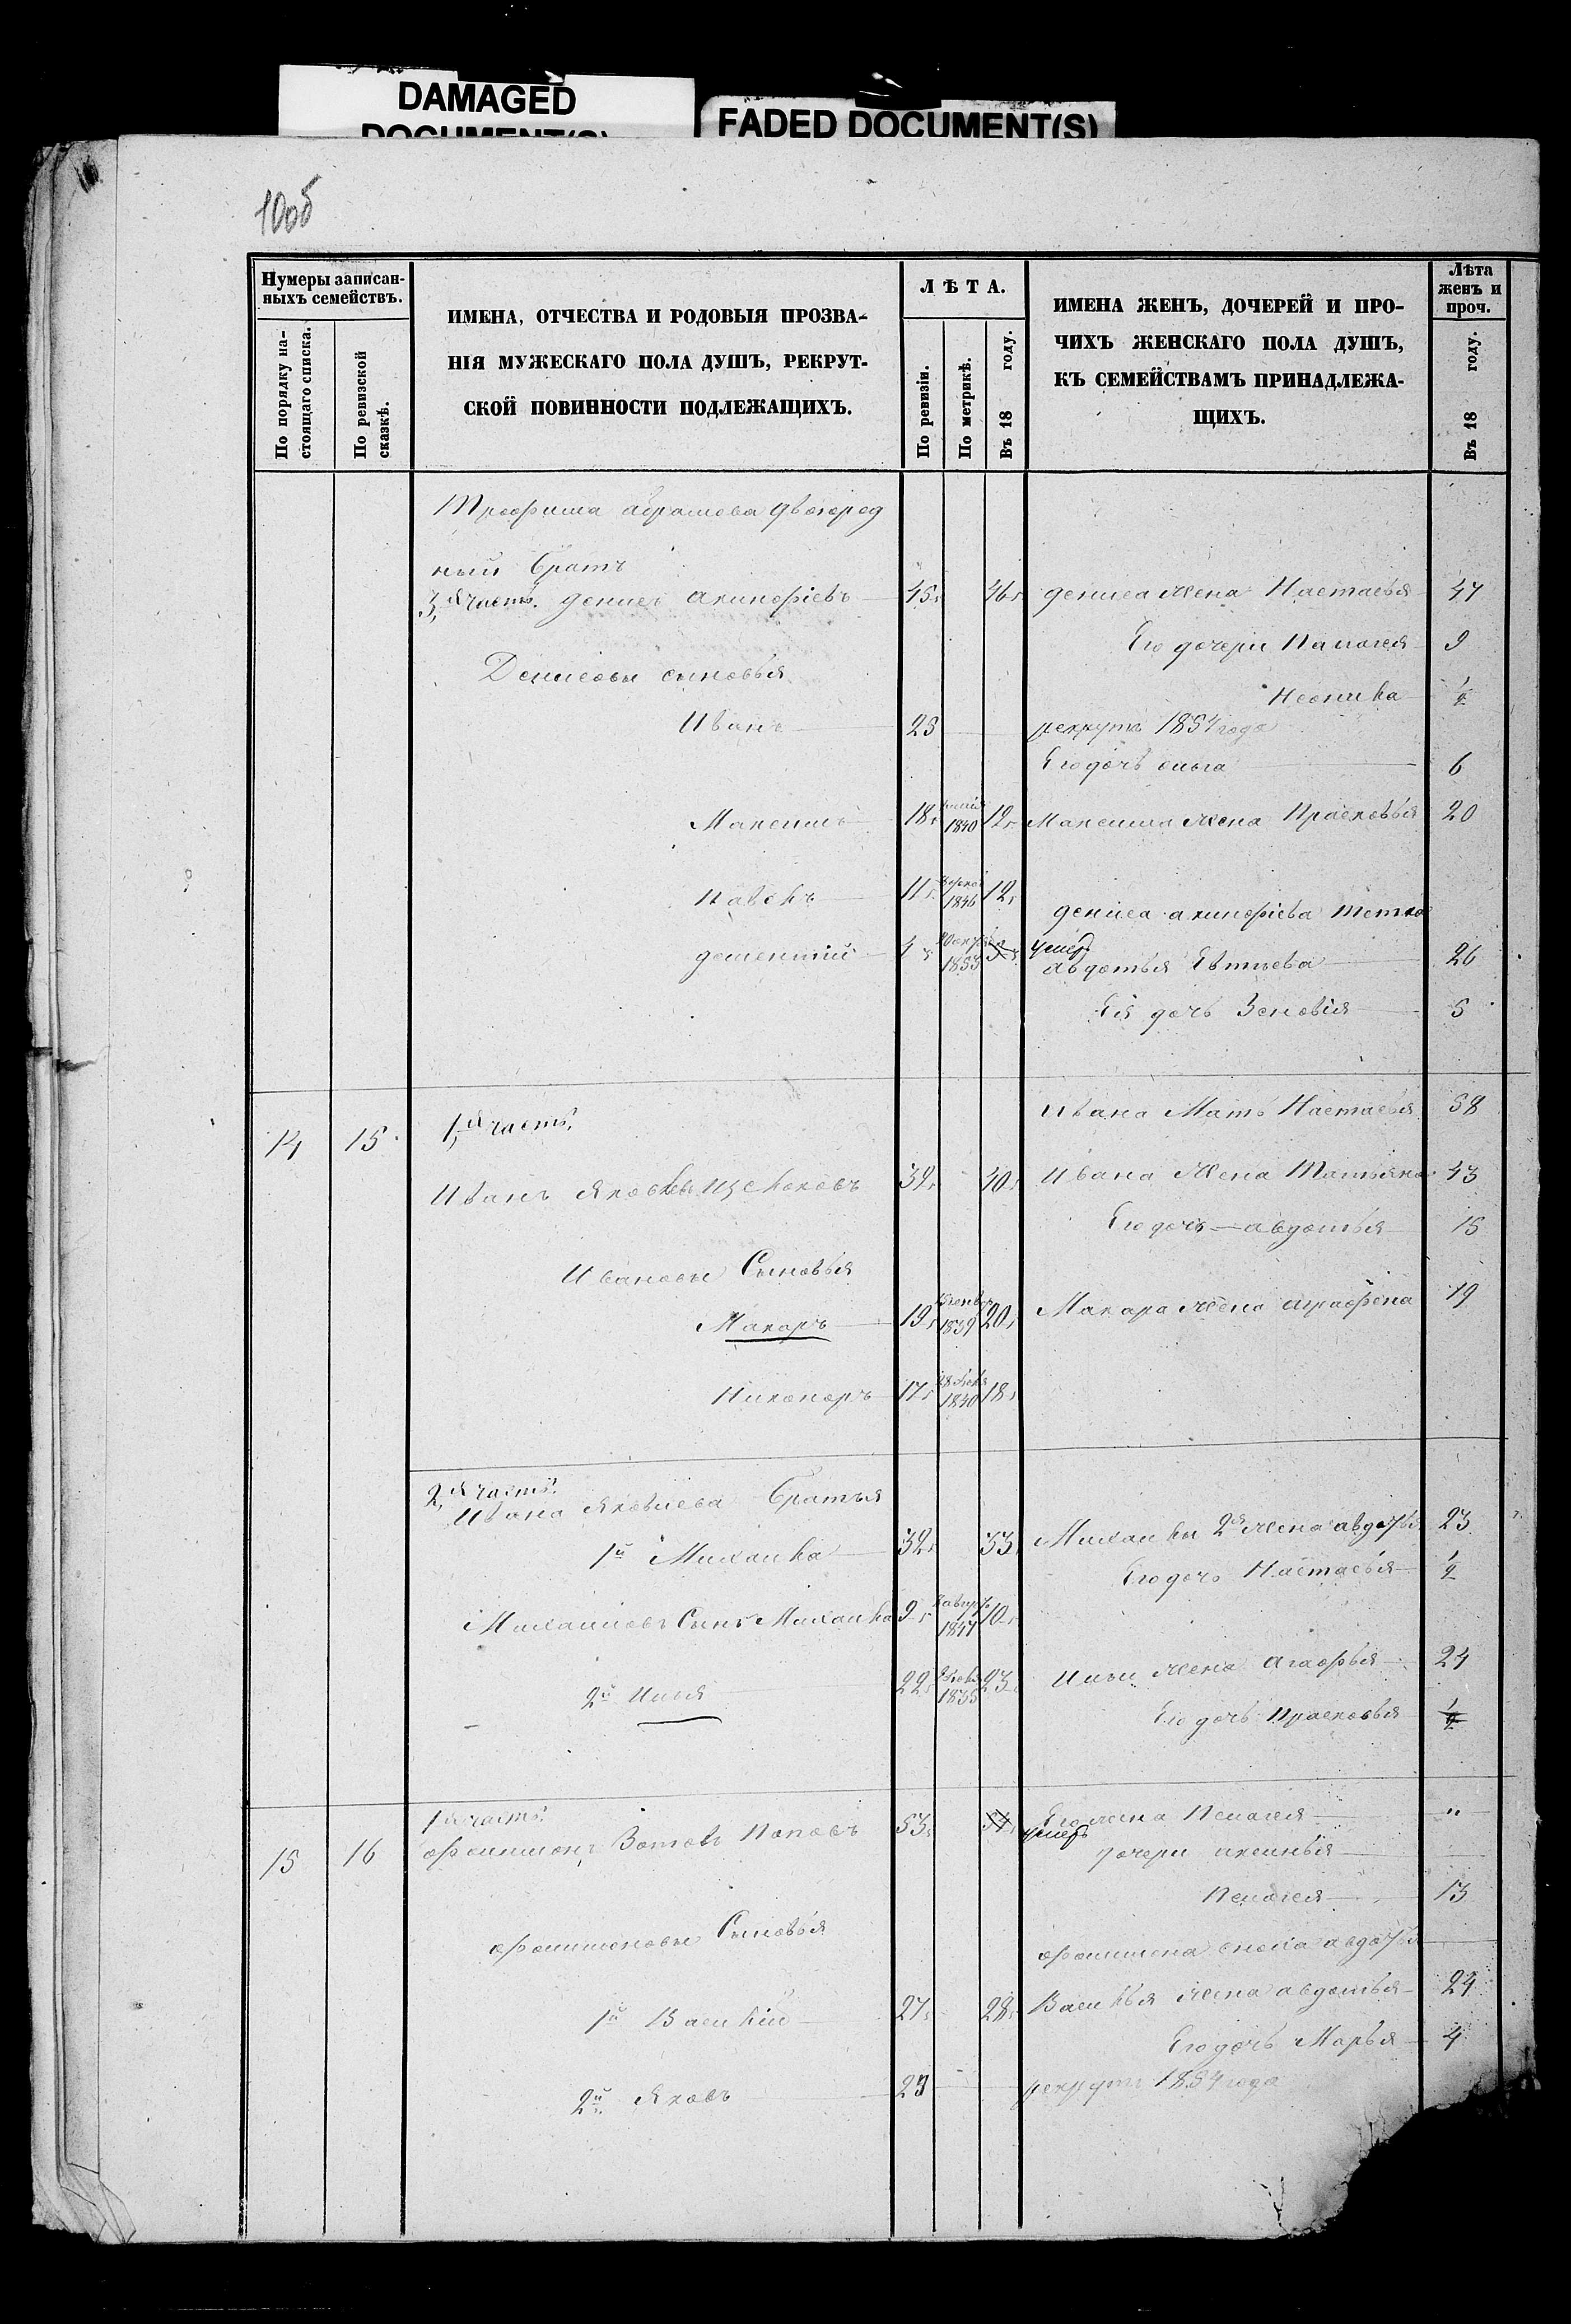 DAMAGED
DOCUMENT(S)
FADED DOCUMENT(S)
10об
Нумеры записан-
ныхъ семействъ.
По порядку на-
стоящаго списка.
По ревизской
сказкѣ.
ИМЕНА, ОТЧЕСТВА И РОДОВЫЯ ПРОЗВА-
НІЯ МУЖЕСКАГО ПОЛА ДУШЪ, РЕКРУТ-
СКОЙ ПОВИННОСТИ ПОДЛЕЖАЩИХЪ.
ЛѢТА.
По ревизіи.
По метрикѣ.
Въ 18 году.
ИМЕНА ЖЕНЪ, ДОЧЕРЕЙ И ПРО-
ЧИХЪ ЖЕНСКАГО ПОЛА ДУШЪ,
КЪ СЕМЕЙСТВАМЪ ПРИНАДЛЕЖА-
ЩИХЪ.
Лѣта
женъ и
проч.
Въ 18 году.
Трофима абрамова двоюрод
ный братъ
3я часть. денисъ акинфіевъ 45 46 дениса жена Настасья 47
Его дочери Палагея 9
Денисовы сыновья
Неонила 1/2
Иванъ 23 рекрутъ 1854 года
Его дочь ольга 6
Максимъ 18 1840 19 Максима жена Прасковья 20
Павелъ 11 1846 12
дениса акинфіева тетка
дементий 4 1853 умеръ
авдотья Евтиева 26
Ея дочь Зеновія 5
Ивана Мать Настасья 58
14 15 1я часть.
Иванъ Яковлевъ 39 40 Ивана жена Татьяна 43
Его дочь авдотья 15
Ивановы Сыновья
Макаръ 19 1839 20 Макара жена аграфена 19
Никоноръ 17 1840 18
2я часть.
Ивана Яковлева братья
1й Михаила 32 33 Михаилы 2я жена авдотья 23
Его дочь Настасья 1/2
Михаиловъ Сынъ Михаила 9 1847 10
2й Илья 22 1835 23 Ильи жена агафья 24
Его дочь Прасковья 1/2
15 16 1я часть.
филимонъ Зотовъ Поповъ 53 54 умеръ
Его жена Пелагея "
дочери аксинья
Пелагея 13
филимоновы Сыновья
филимона сноха авдотья
1й Василий 27 28 Василья жена авдотья 24
Его дочь Марья 4
2й Яковъ 23 рекрутъ 1854 года